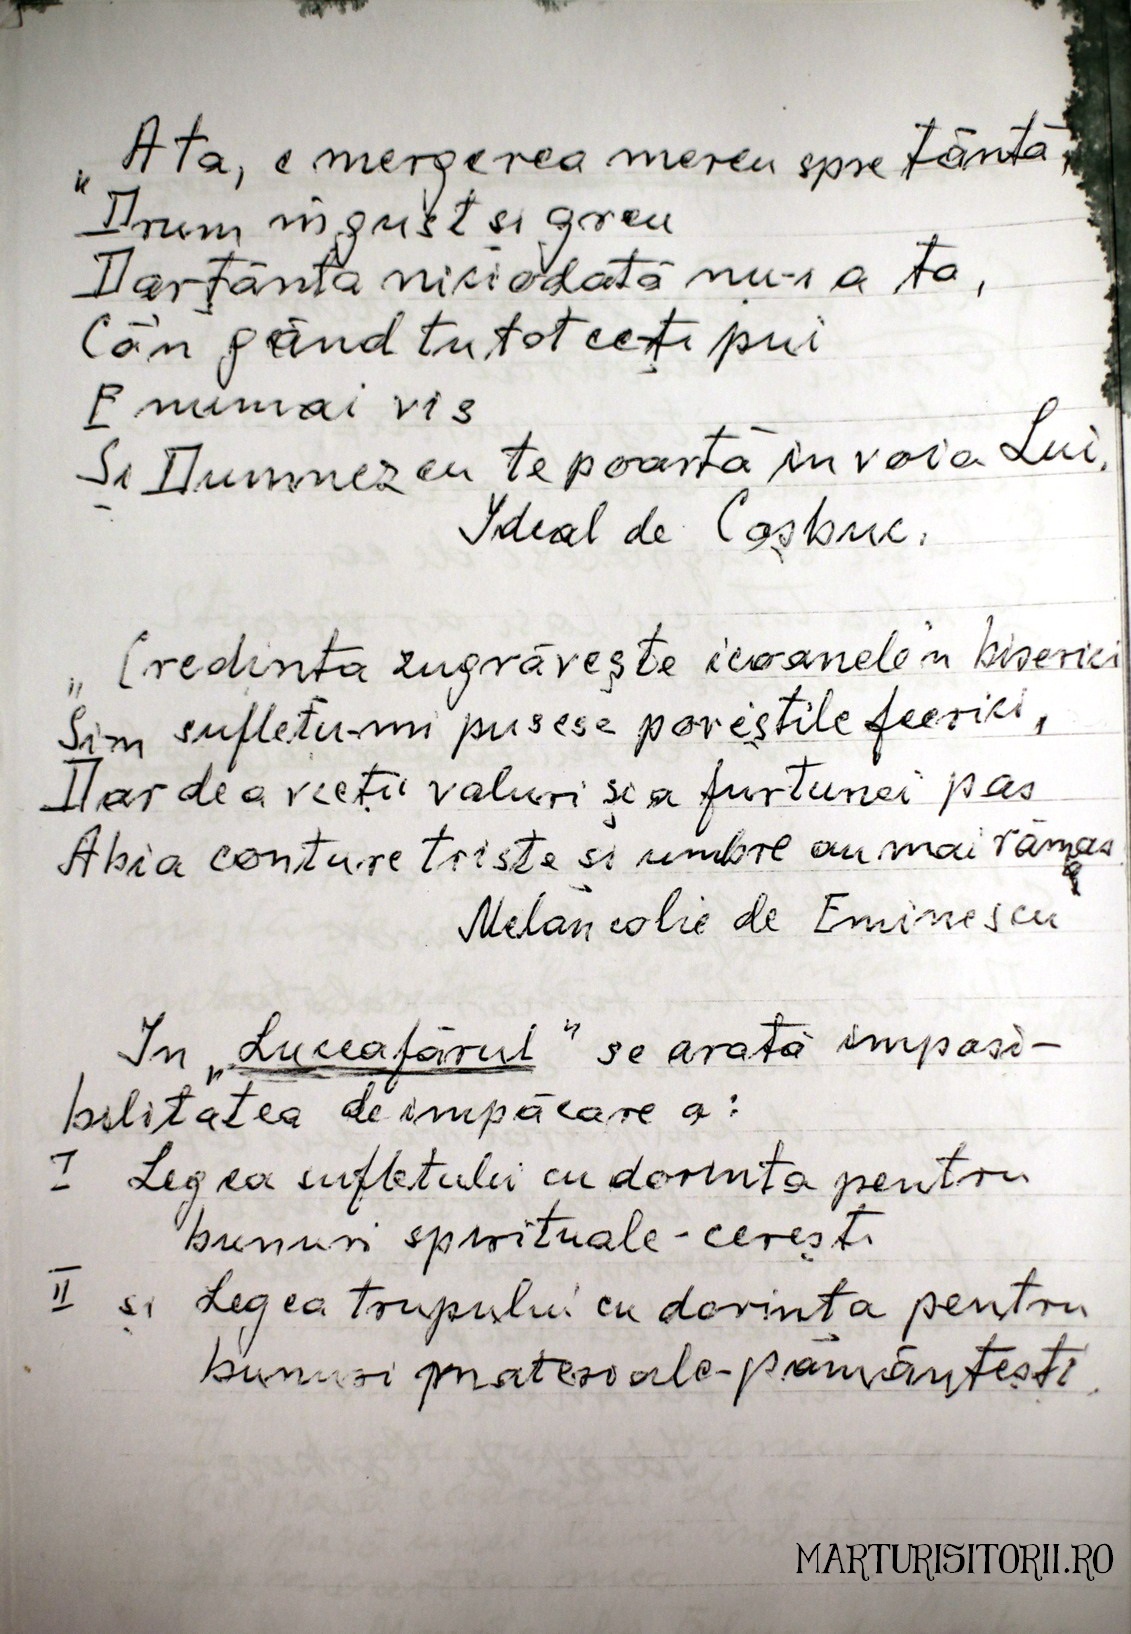 „A ta, e mergerea mereu spre țântă,
Drum îngust si greu
Dar țânta niciodată nu-i a ta,
Că'n gând tu tot ce-ți pui
E numai vis
Și Dumnezeu te poartă in voia Lui.
Ideal de Coșbuc.
„Credința zugrăvește icoanele'n biserici
Și'm sufletu-mi pusese poveștile feerici,
Dar de a vieții valuri și a furtunei pas
Abia conture triste si umbre au mai rămas
Melancolie de Eminescu
In „Luceafărul" se arată imposi-
bilitatea de impăcare a:
I Legea sufletului cu dorința pentru
bunuri spirituale-cerești
II și Legea trupului cu dorința pentru
bunuri materiale-pământești.
MARTURISITORII.RO